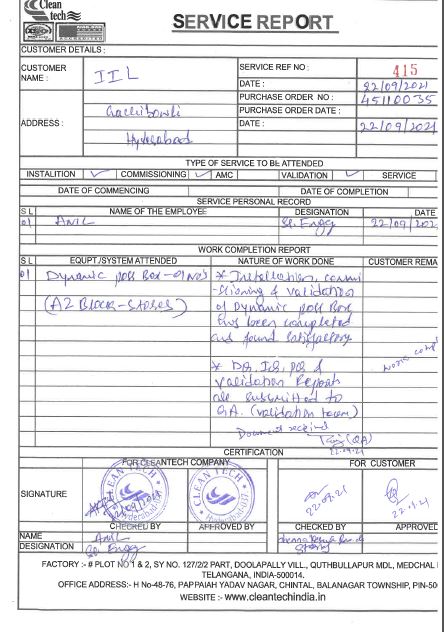 Clean
tech
SERVICE REPORT
CUSTOMER DETAILS :
CUSTOMER NAME : IIL
SERVICE REF NO : 415
DATE : 22/09/2021
PURCHASE ORDER NO : 45110035
PURCHASE ORDER DATE :
ADDRESS : Gachibowli
DATE : 22/09/2021
Hyderabad
TYPE OF SERVICE TO BE ATTENDED
INSTALITION ✓ COMMISSIONING ✓ AMC VALIDATION ✓ SERVICE
DATE OF COMMENCING DATE OF COMPLETION
SERVICE PERSONAL RECORD
S L NAME OF THE EMPLOYEE DESIGNATION DATE
01 ANIL Sr. Engg 22/09/202
WORK COMPLETION REPORT
S L EQUPT./SYSTEM ATTENDED NATURE OF WORK DONE CUSTOMER REMA
01 Dynamic pass Box - 01 No's * Installation, commi
(A2 BLOCK - STORES) -ssioning & validation
of Dynamic pass Box
has been completed
and found satisfactory
work comp
* DQ, IQ, OQ &
validation Reports
are submitted to
QA. (validation team)
Document received
(QA)
22.09.21
CERTIFICATION
FOR CLEANTECH COMPANY FOR CUSTOMER
CLEAN TECH
Hyderabad
CLEAN TECH
Hyderabad
SIGNATURE 22/09/2021 22.09.21
CHECKED BY APPROVED BY CHECKED BY APPROVED
NAME Anil
DESIGNATION Sr. Engg
FACTORY :- # PLOT NO 1 & 2, SY NO. 127/2/2 PART, DOOLAPALLY VILL., QUTHBULLAPUR MDL, MEDCHAL
TELANGANA, INDIA-500014.
OFFICE ADDRESS:- H No-48-76, PAPPAIAH YADAV NAGAR, CHINTAL, BALANAGAR TOWNSHIP, PIN-50
WEBSITE :- www.cleantechindia.in